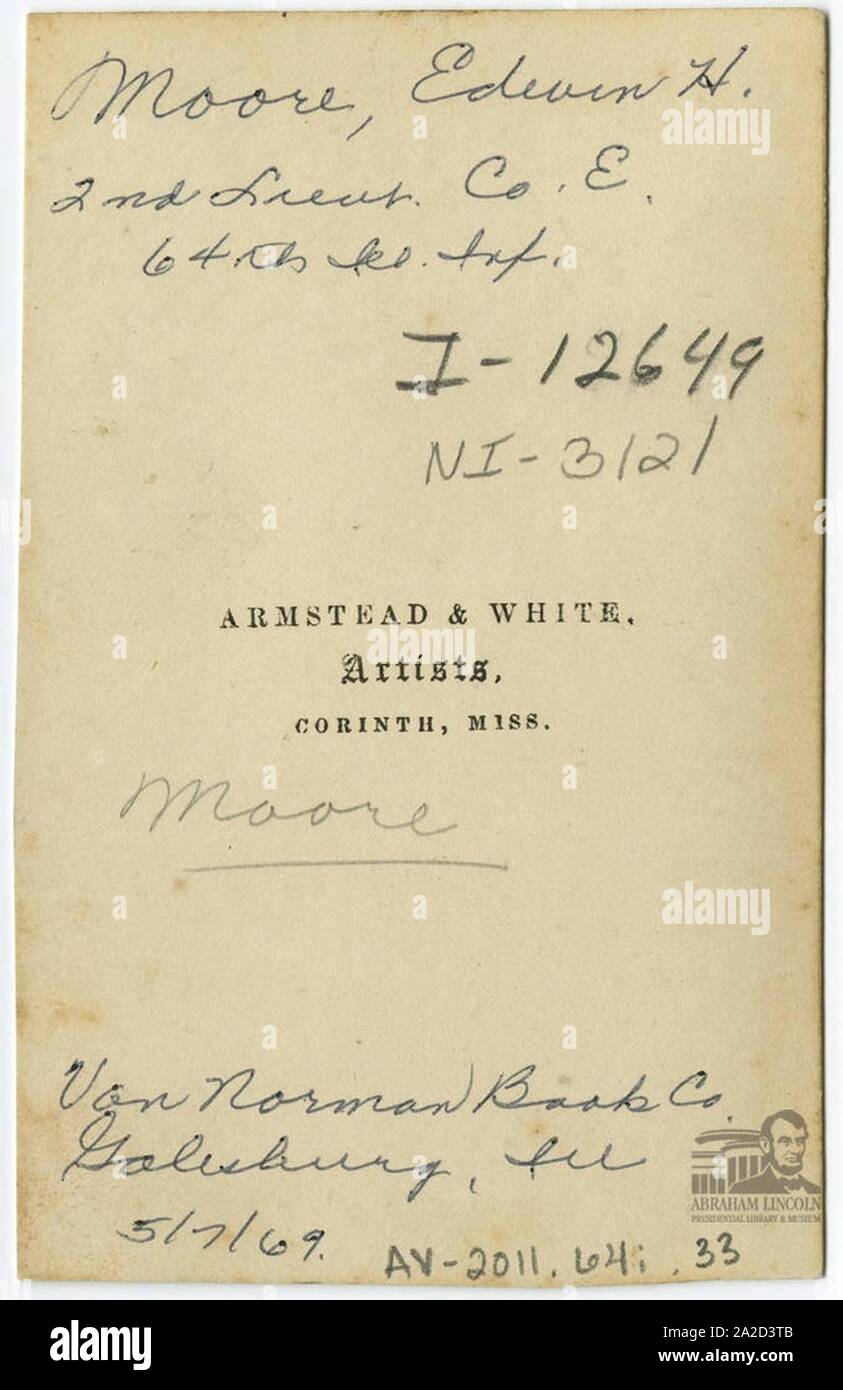 Moore, Edwin H.
2nd Lieut. Co. E.
64th Ill. Inf.
I-12649
NI-3121
ARMSTEAD & WHITE.
Artists,
CORINTH, MISS.
Moore
Von Norman Book Co.
Galesburg, Ill
5/7/69.
AV-2011.64i.33
ABRAHAM LINCOLN
PRESIDENTIAL LIBRARY & MUSEUM
alamy
alamy
alamy
alamy
Image ID: 2A2D3TB
www.alamy.com